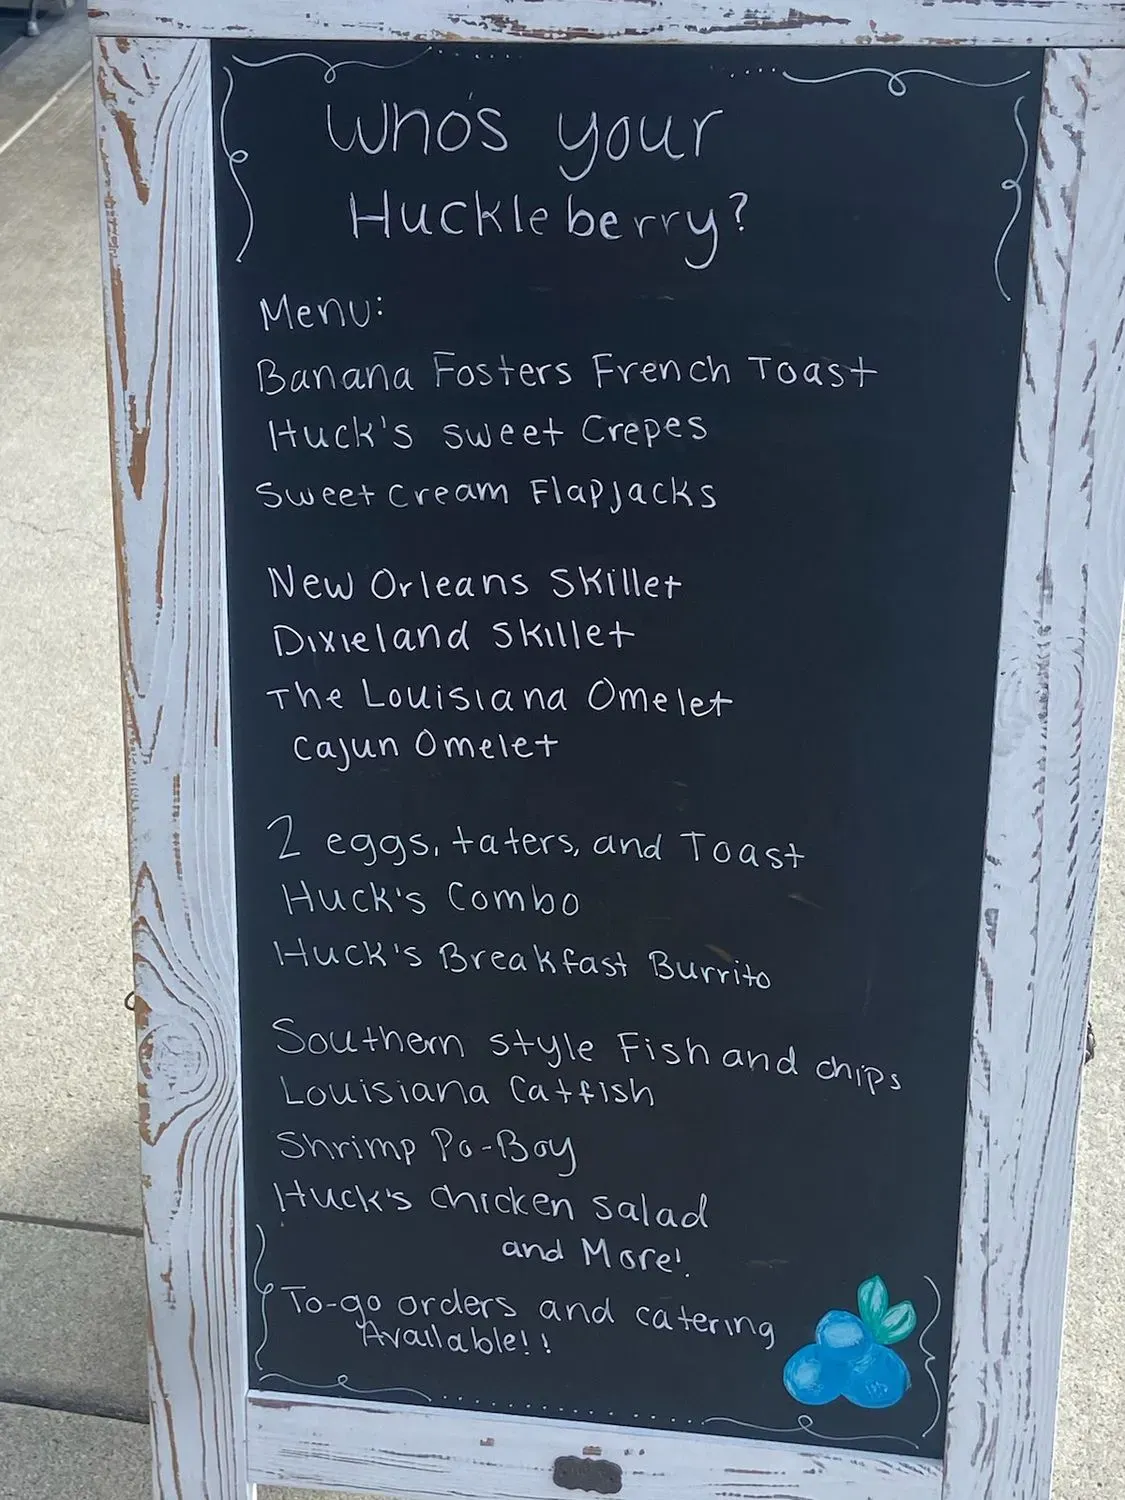 Who's your
Huckleberry?
Menu:
Banana Fosters French Toast
Huck's sweet Crepes
Sweet Cream Flapjacks
New Orleans Skillet
Dixieland Skillet
The Louisiana Omelet
Cajun Omelet
2 eggs, taters, and Toast
Huck's Combo
Huck's Breakfast Burrito
Southern style Fish and chips
Louisiana Catfish
Shrimp Po-Boy
Huck's chicken salad
and More!
To-go orders and catering
Available!!